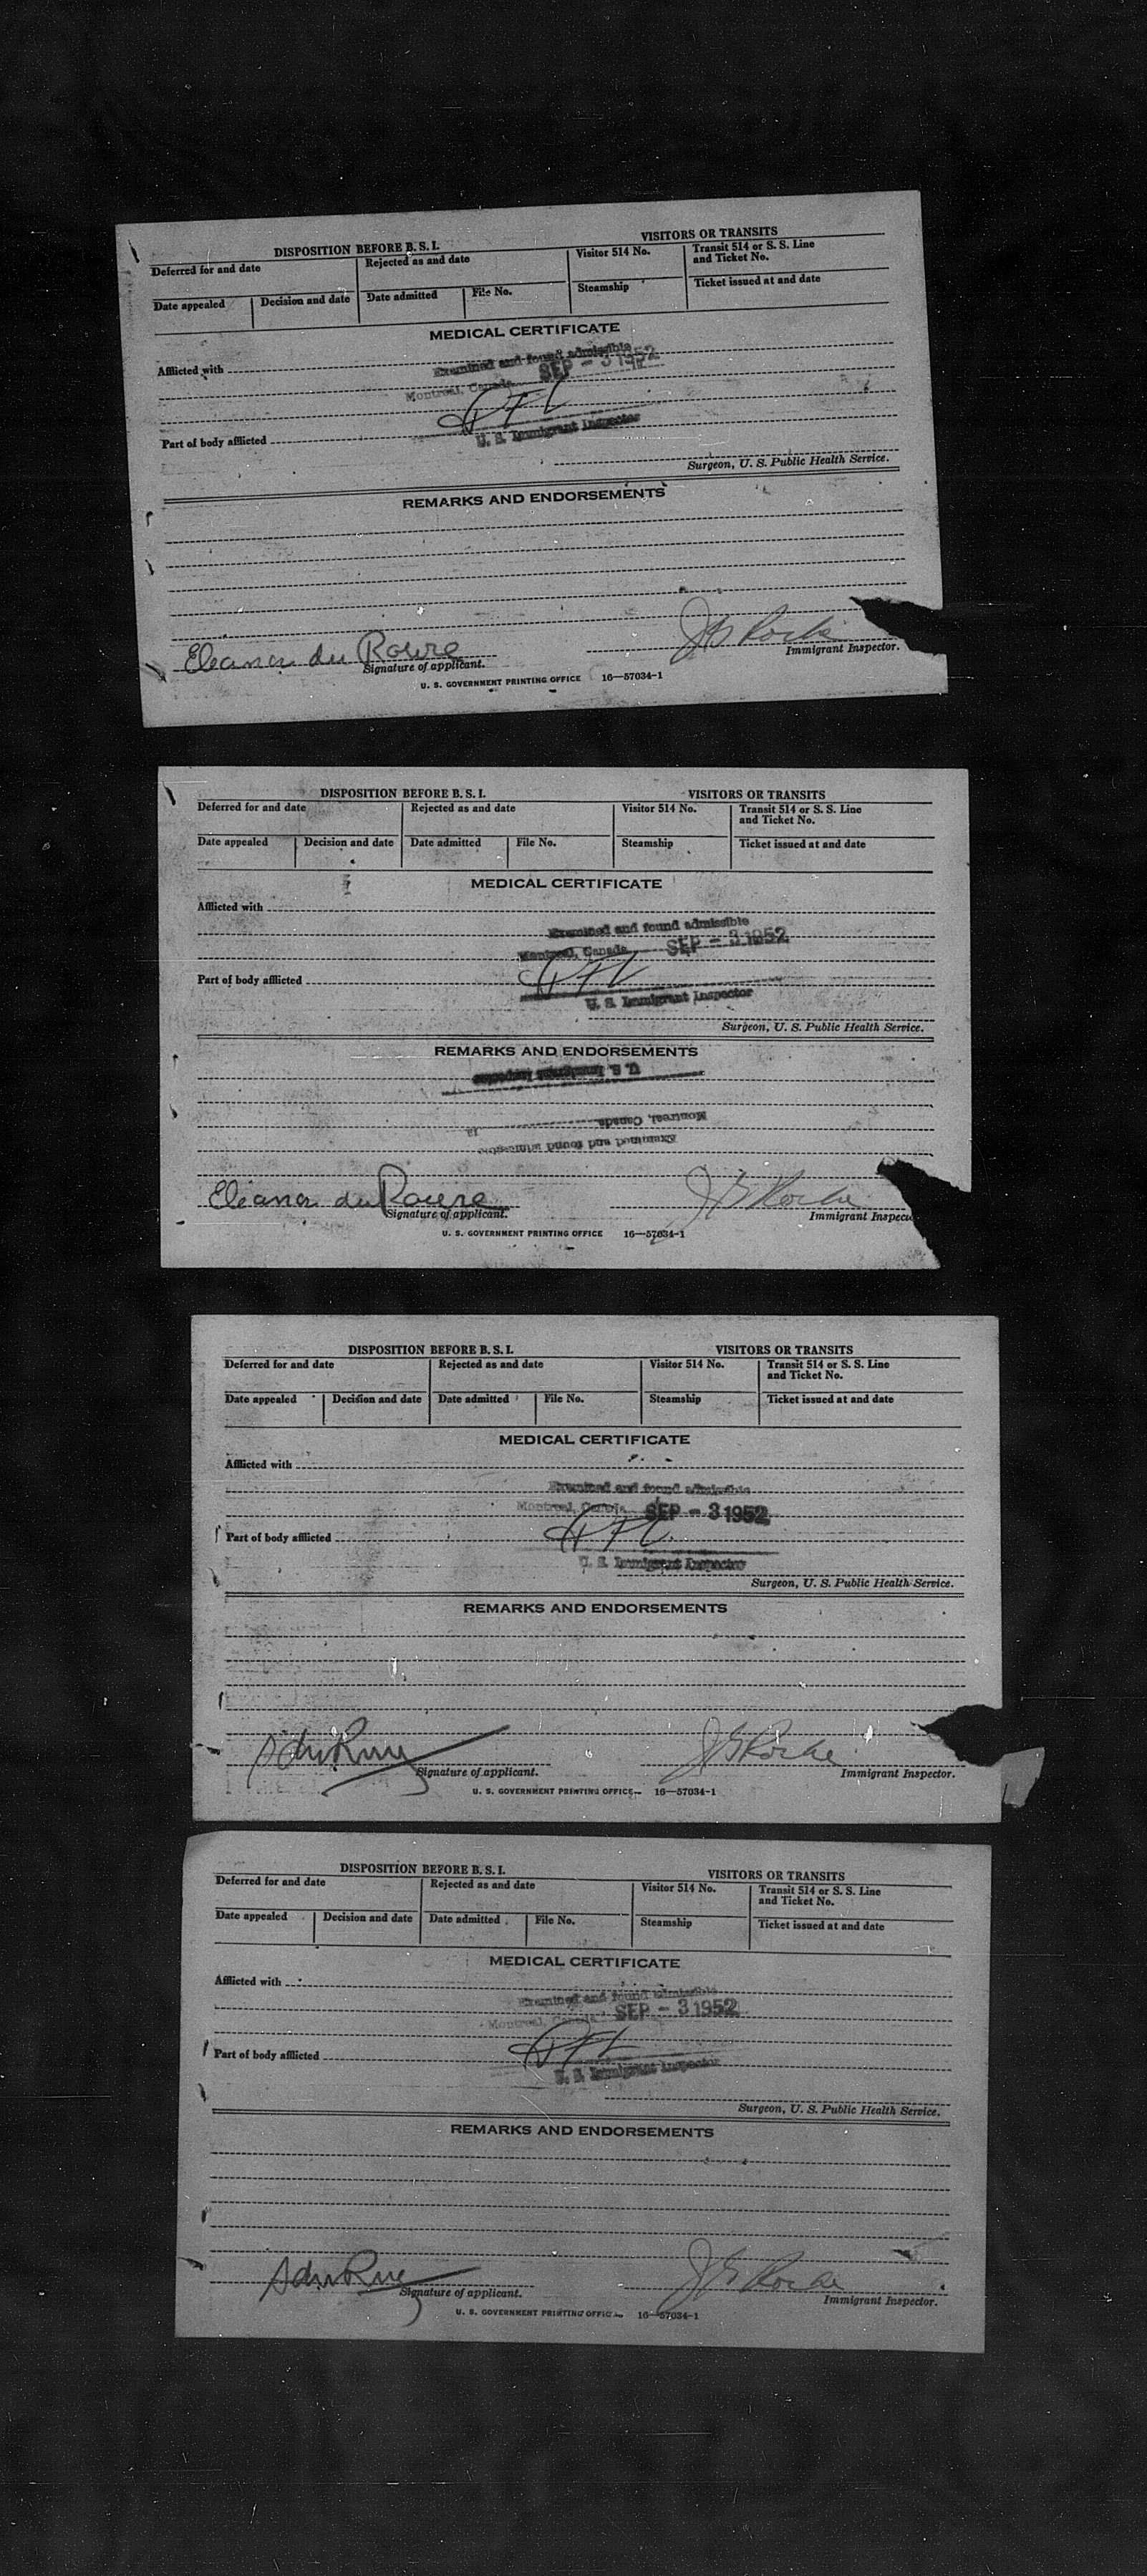 DISPOSITION BEFORE B. S. I.
VISITORS OR TRANSITS
Deferred for and date
Rejected as and date
Visitor 514 No.
Transit 514 or S. S. Line
and Ticket No.
Date appealed
Decision and date
Date admitted
File No.
Steamship
Ticket issued at and date
MEDICAL CERTIFICATE
Afflicted with
Examined and found admissible
Montreal, Canada SEP - 3 1952
Part of body afflicted
U. S. Immigrant Inspector
Surgeon, U. S. Public Health Service.
REMARKS AND ENDORSEMENTS
Eleanor du Roure
Signature of applicant.
Immigrant Inspector.
U. S. GOVERNMENT PRINTING OFFICE 16—57034-1
DISPOSITION BEFORE B. S. I.
VISITORS OR TRANSITS
Deferred for and date
Rejected as and date
Visitor 514 No.
Transit 514 or S. S. Line
and Ticket No.
Date appealed
Decision and date
Date admitted
File No.
Steamship
Ticket issued at and date
MEDICAL CERTIFICATE
Afflicted with
Examined and found admissible
Montreal, Canada SEP - 3 1952
Part of body afflicted
U. S. Immigrant Inspector
Surgeon, U. S. Public Health Service.
REMARKS AND ENDORSEMENTS
U. S. Immigrant Inspector
Montreal, Canada 19
Examined and found admissible
Eleanor du Roure
J G Roche
Signature of applicant.
Immigrant Inspec
U. S. GOVERNMENT PRINTING OFFICE 16—57034-1
DISPOSITION BEFORE B. S. I.
VISITORS OR TRANSITS
Deferred for and date
Rejected as and date
Visitor 514 No.
Transit 514 or S. S. Line
and Ticket No.
Date appealed
Decision and date
Date admitted
File No.
Steamship
Ticket issued at and date
MEDICAL CERTIFICATE
Afflicted with
Examined and found admissible
Montreal, Canada SEP - 3 1952
Part of body afflicted
U. S. Immigrant Inspector
Surgeon, U. S. Public Health Service.
REMARKS AND ENDORSEMENTS
J G Roche
Signature of applicant.
Immigrant Inspector.
U. S. GOVERNMENT PRINTING OFFICE 16—57034-1
DISPOSITION BEFORE B. S. I.
VISITORS OR TRANSITS
Deferred for and date
Rejected as and date
Visitor 514 No.
Transit 514 or S. S. Line
and Ticket No.
Date appealed
Decision and date
Date admitted
File No.
Steamship
Ticket issued at and date
MEDICAL CERTIFICATE
Afflicted with
Examined and found admissible
Montreal, Canada SEP - 3 1952
Part of body afflicted
U. S. Immigrant Inspector
Surgeon, U. S. Public Health Service.
REMARKS AND ENDORSEMENTS
J G Roche
Signature of applicant.
Immigrant Inspector.
U. S. GOVERNMENT PRINTING OFFICE 16—57034-1